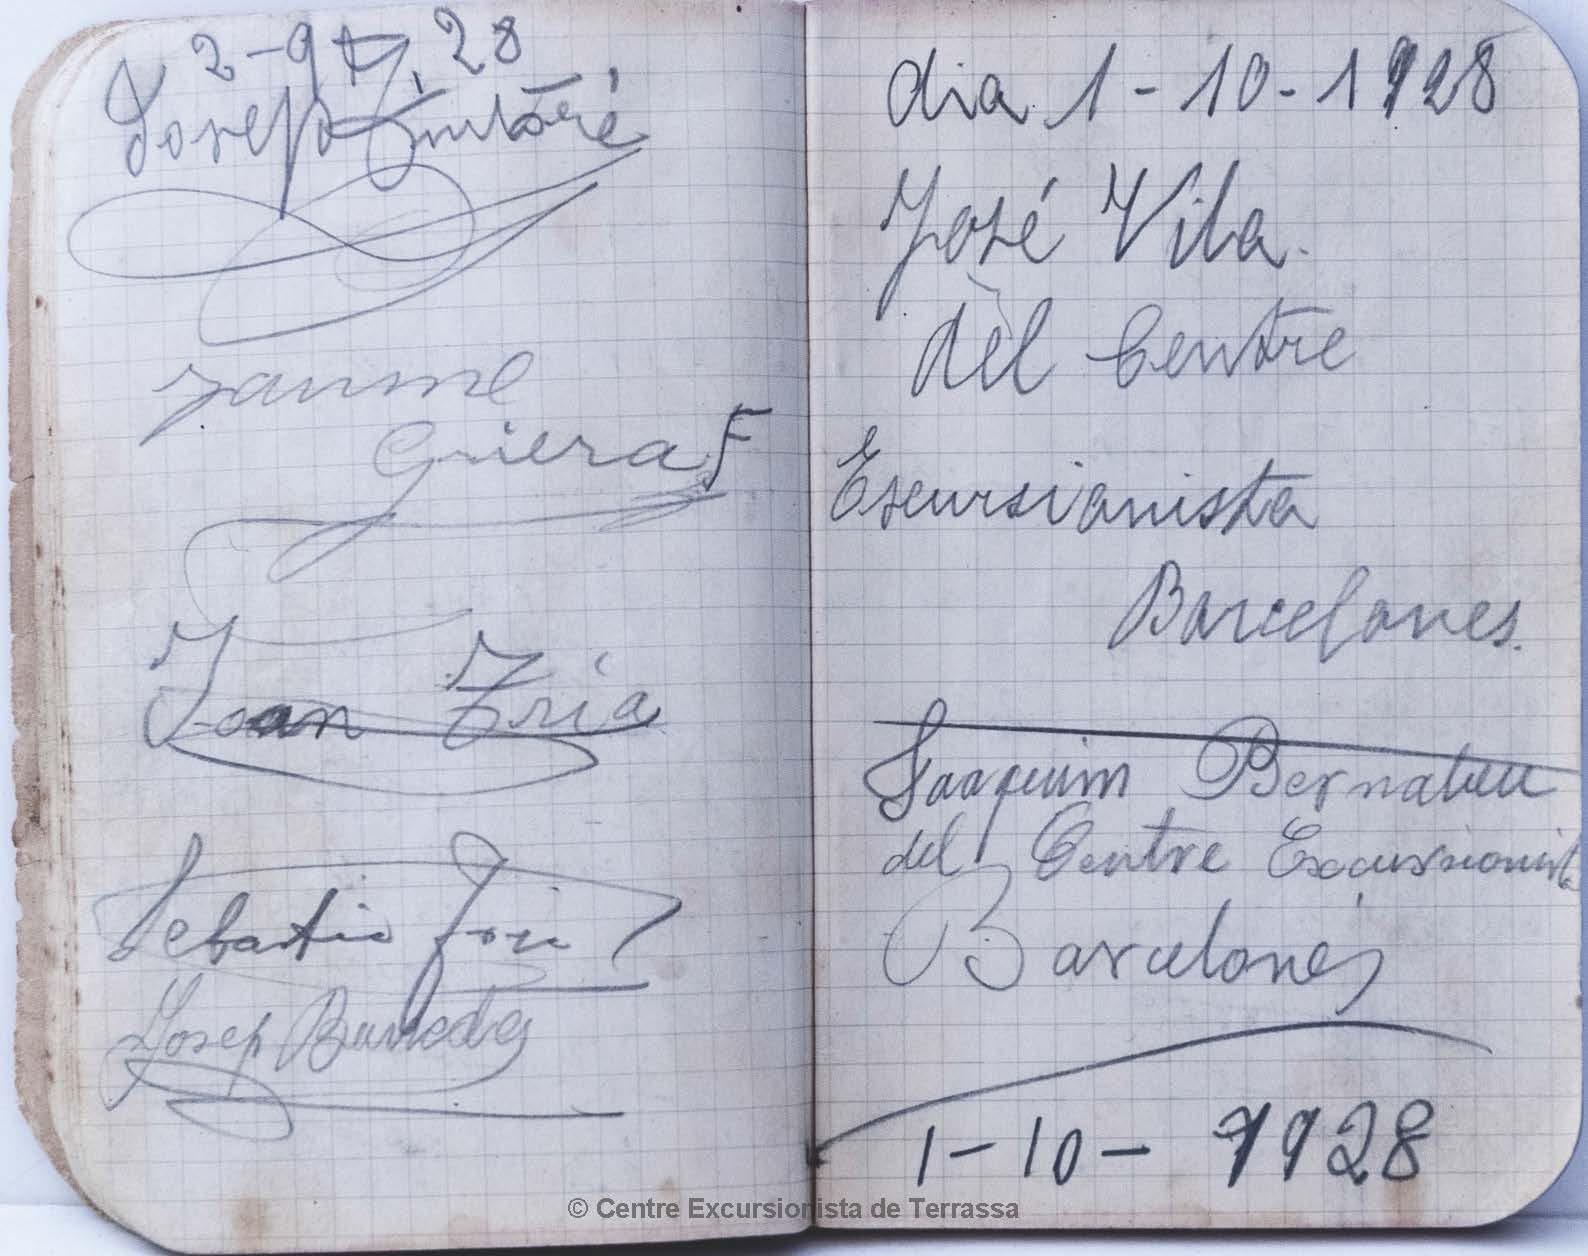 2-9-28
Josep
Jaume
Griera F
Joan Tria
Sebastià
Josep
dia 1-10-1928
José Vila.
del Centre
Escursianista
Barcelones.
Joaquim Bernabeu
del Centre Excursionista
Barcelonés
1-10-1928
© Centre Excursionista de Terrassa